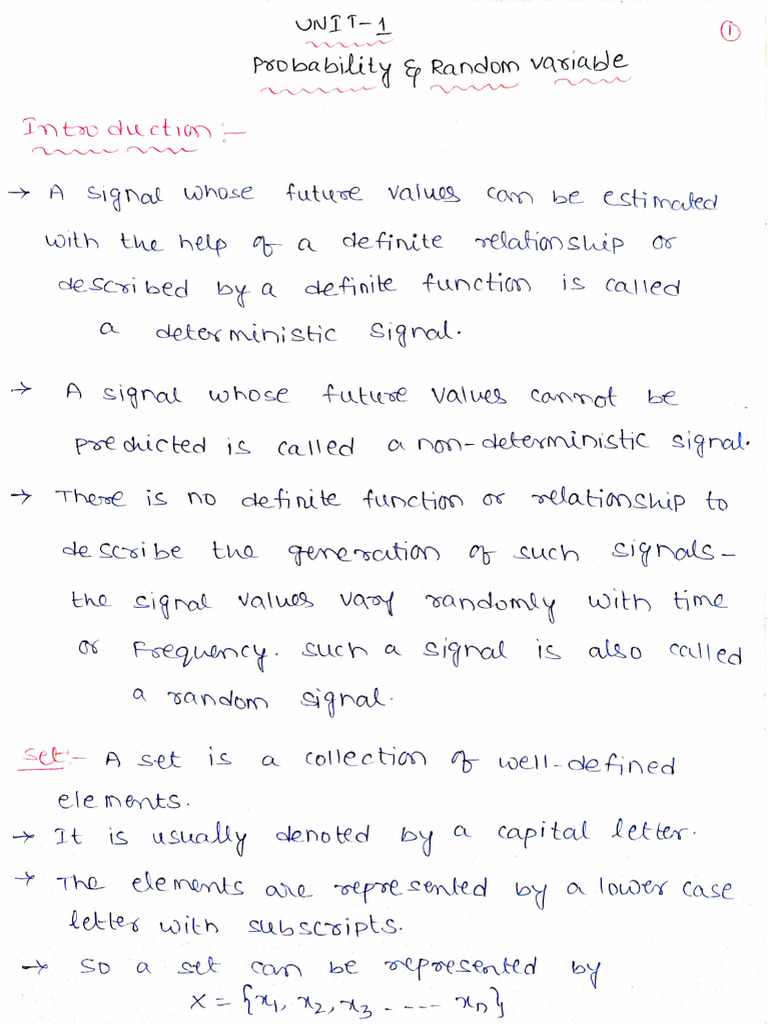 UNIT-1
1
Probability & Random Variable
Introduction:-
→ A signal whose future values can be estimated
with the help of a definite relationship or
described by a definite function is called
a deterministic signal.
→ A signal whose future values cannot be
predicted is called a non-deterministic signal.
→ There is no definite function or relationship to
describe the generation of such signals-
the signal values vary randomly with time
or Frequency. such a signal is also called
a random signal.
Set:- A set is a collection of well-defined
elements.
→ It is usually denoted by a capital letter.
→ The elements are represented by a lower case
letter with subscripts.
→ So a set can be represented by
X = {x1, x2, x3 - ---- xn}